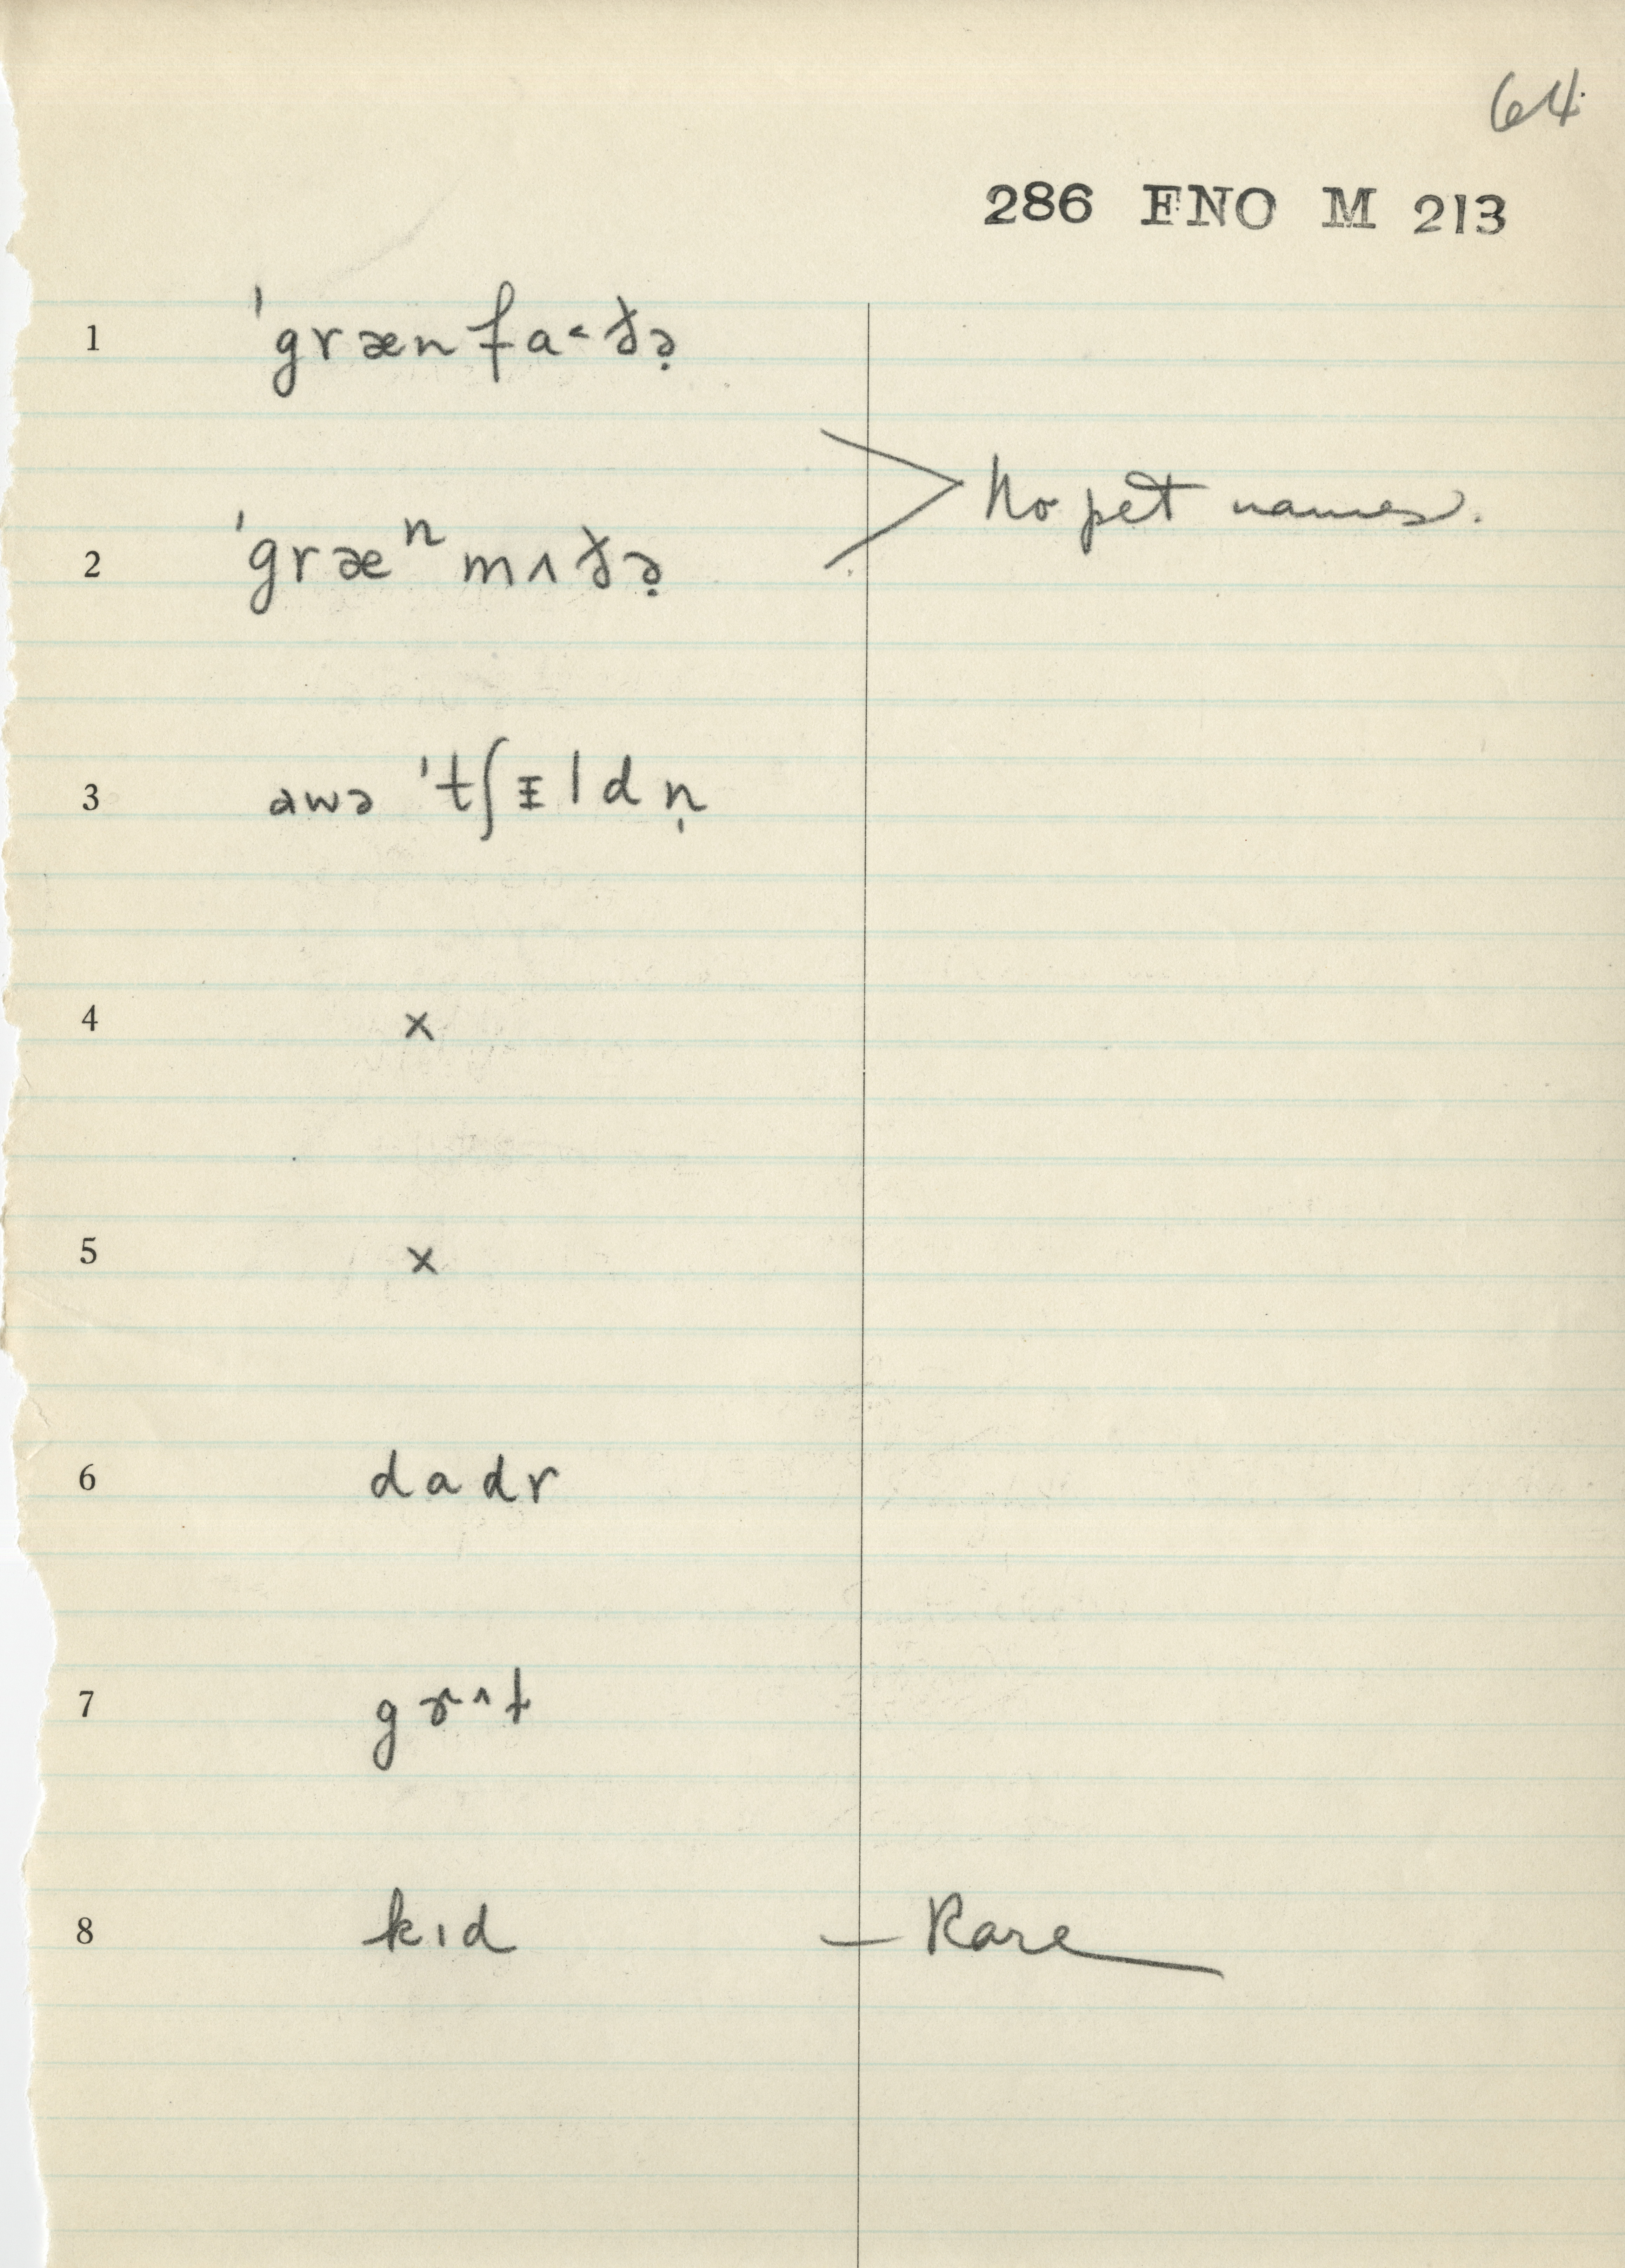 64
286 FNO M 213
1 ˈgrænfa˂ðə̣
No pet names.
2 ˈgræⁿmʌðə̣
3 awə ˈtʃᵻldn̩
4 x
5 x
6 dadr
7 gɤ^t
8 kɪd — Rare